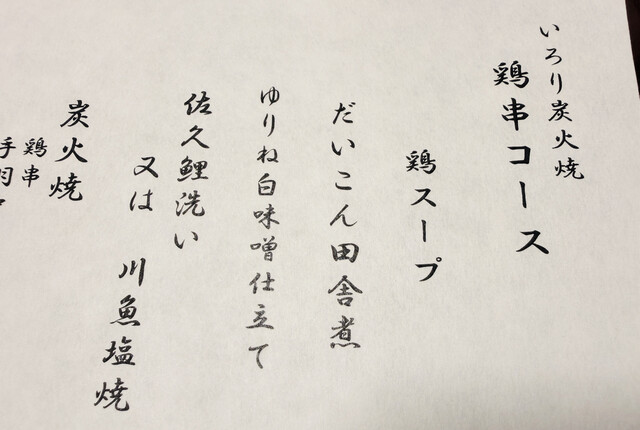 いろり炭火焼
鶏串コース
鶏スープ
だいこん田舎煮
ゆりね白味噌仕立て
佐久鯉洗い
又は 川魚塩焼
炭火焼
鶏串
手羽